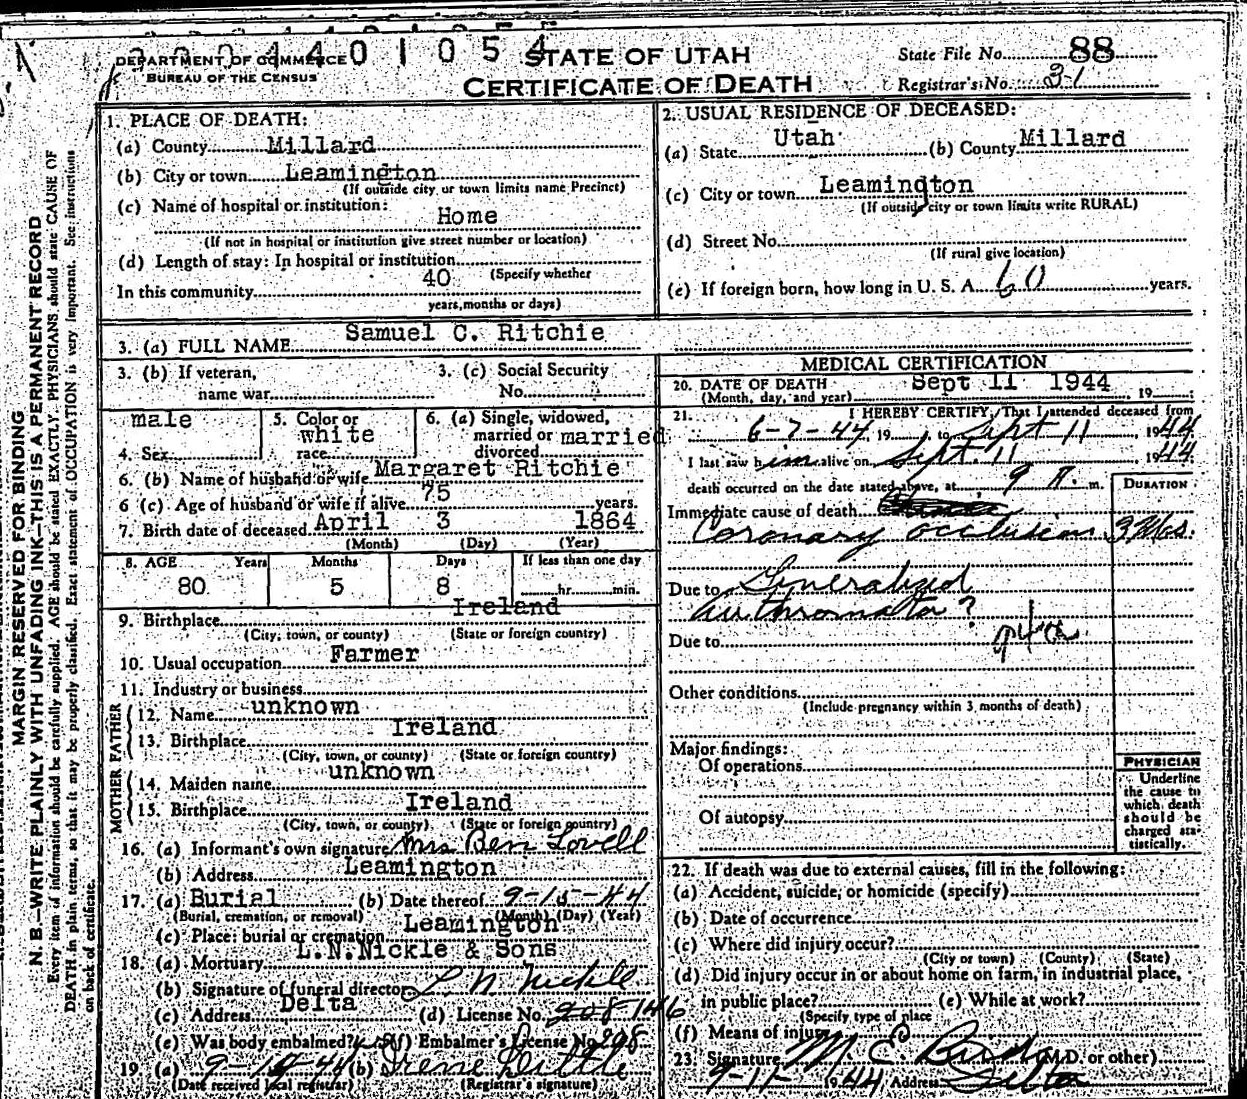 DEPARTMENT OF COMMERCE
BUREAU OF THE CENSUS
STATE OF UTAH
CERTIFICATE OF DEATH
State File No. 88
Registrar's No. 31
MARGIN RESERVED FOR BINDING
N. B.—WRITE PLAINLY WITH UNFADING INK—THIS IS A PERMANENT RECORD
Every item of information should be carefully supplied. AGE should be stated EXACTLY. PHYSICIANS should state CAUSE OF
DEATH in plain terms, so that it may be properly classified. Exact statement of OCCUPATION is very important. See instructions
on back of certificate.
1. PLACE OF DEATH:
(a) County Millard
(b) City or town Leamington
(If outside city or town limits name Precinct)
(c) Name of hospital or institution:
Home
(If not in hospital or institution give street number or location)
(d) Length of stay: In hospital or institution
(Specify whether
In this community 40
years, months or days)
2. USUAL RESIDENCE OF DECEASED:
(a) State Utah (b) County Millard
(c) City or town Leamington
(If outside city or town limits write RURAL)
(d) Street No.
(If rural give location)
(e) If foreign born, how long in U. S. A. 60 years.
3. (a) FULL NAME Samuel C. Ritchie
3. (b) If veteran,
name war
3. (c) Social Security
No.
4. Sex male
5. Color or
race white
6. (a) Single, widowed,
married or married
divorced
6. (b) Name of husband or wife Margaret Ritchie
6 (c) Age of husband or wife if alive 75 years.
7. Birth date of deceased April 3 1864
(Month) (Day) (Year)
8. AGE Years Months Days If less than one day
80 5 8 hr. min.
9. Birthplace Ireland
(City, town, or county) (State or foreign country)
10. Usual occupation Farmer
11. Industry or business
FATHER
12. Name unknown
13. Birthplace Ireland
(City, town, or county) (State or foreign country)
MOTHER
14. Maiden name unknown
15. Birthplace Ireland
(City, town, or county) (State or foreign country)
16. (a) Informant's own signature Mrs Ben Lovell
(b) Address Leamington
17. (a) Burial (b) Date thereof 9-15-44
(Burial, cremation, or removal) (Month) (Day) (Year)
(c) Place: burial or cremation Leamington
18. (a) Mortuary L.N.Nickle & Sons
(b) Signature of funeral director L N Nickle
(c) Address Delta (d) License No. 146
(e) Was body embalmed? (f) Embalmer's License No. 208
19. (a) (b) Irene
(Date received local registrar) (Registrar's signature)
MEDICAL CERTIFICATION
20. DATE OF DEATH Sept 11 1944, 19
(Month, day, and year)
21. I HEREBY CERTIFY, That I attended deceased from
6-7-44, 19 , to Sept 11, 1944
I last saw him alive on Sept. 11, 1944
death occurred on the date stated above, at 9 A. m.
DURATION
Immediate cause of death
Coronary occlusion 3 Mos.
Due to Generalized
?
Due to
Other conditions
(Include pregnancy within 3 months of death)
Major findings:
Of operations
Of autopsy
PHYSICIAN
Underline
the cause to
which death
should be
charged sta-
tistically.
22. If death was due to external causes, fill in the following:
(a) Accident, suicide, or homicide (specify)
(b) Date of occurrence
(c) Where did injury occur?
(City or town) (County) (State)
(d) Did injury occur in or about home on farm, in industrial place,
in public place? (e) While at work?
(Specify type of place
(f) Means of injury
23. Signature M. E. Bird (M.D. or other)
9-11- 1944 Address Delta